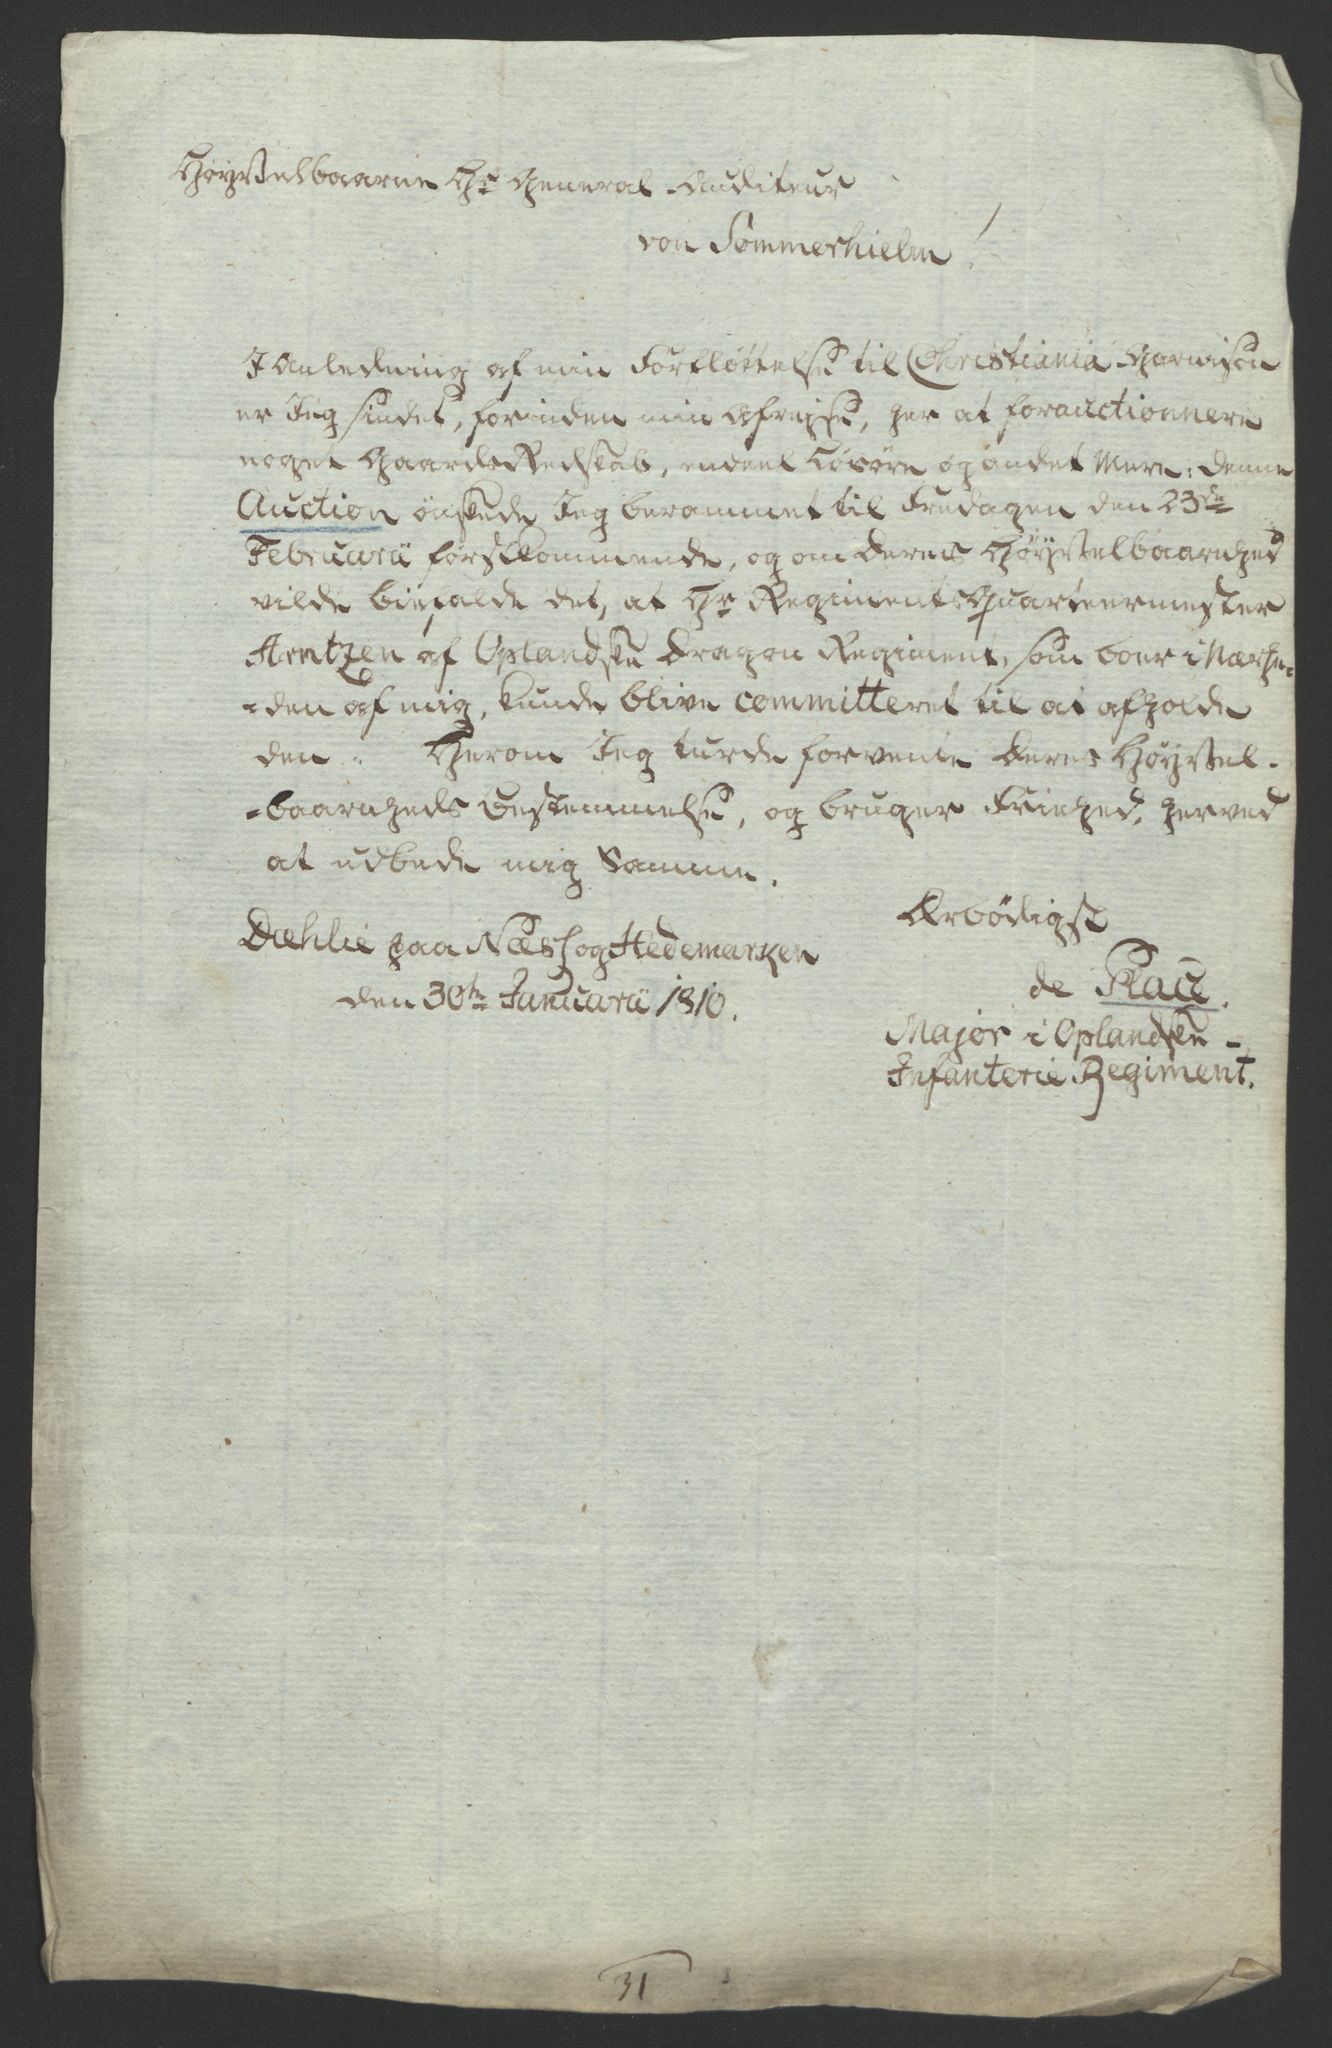 Høyvelbaarne Hr General-Auditeur
von Sommerhielm!
I Anledning af min Forfløttelse til Christiania Garnison
er Jeg sindet, forinden min Afreyse, her at forauctionnere
noget GaardsRedskab, endeel Løsöre og andet Mere; denne
Auction önskede Jeg berammet til Fredagen den 23de
Februarii førstkommende, og om Deres Høyvelbaarnhed
vilde biefalde det, at Hr RegimentsQuarteermester
Hentzen af Oplandske Dragon Regiment, som boer i Nærhe-
-den af mig, kunde blive committeret til at afholde
den. Herom Jeg turde forvente Deres Høyvel-
-baarnheds Bestemmelse, og bruger Friehed, herved
at udbede mig Samme.
Ærbödigst
Dæhlie paa Næs og Hedemarken
den 30te Januarii 1810.
de
Major i Oplandske
Infanterie Regiment.
31